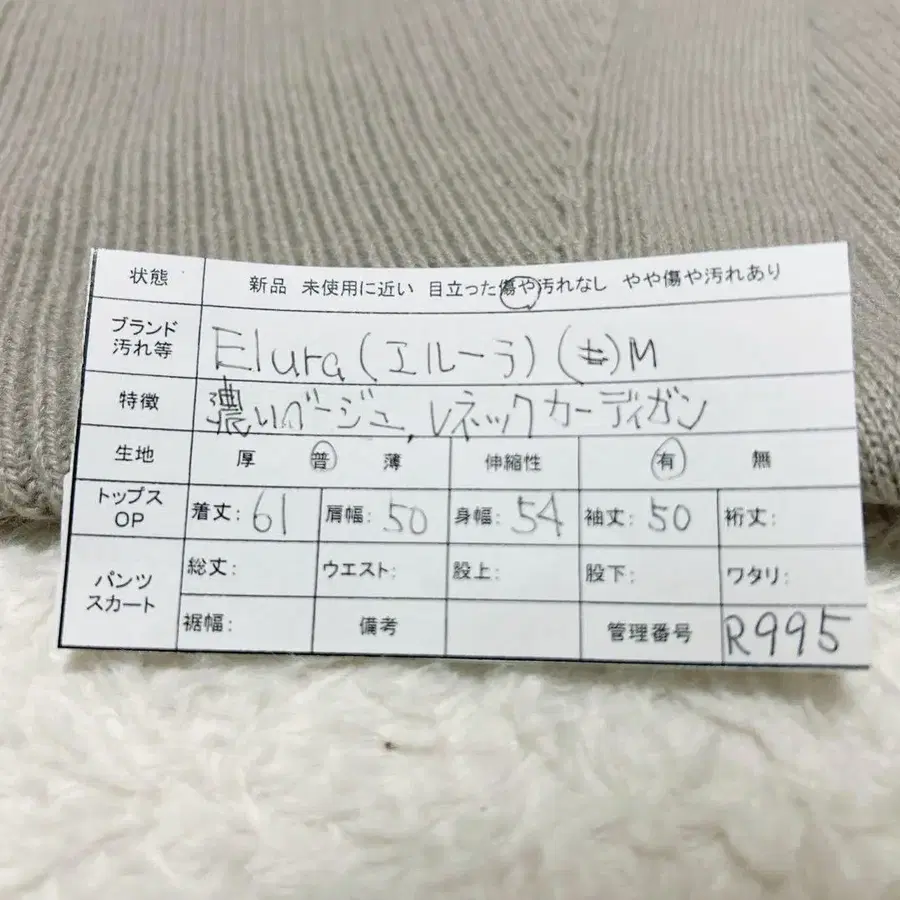 状態 新品 未使用に近い 目立った傷や汚れなし やや傷や汚れあり
ブランド 汚れ等 Elura (エルーラ) (キ)M
特徴 濃いベージュ, Vネックカーディガン
生地 厚 普 薄 伸縮性 有 無
トップス OP 着丈: 61 肩幅: 50 身幅: 54 袖丈: 50 裄丈:
パンツ スカート 総丈: ウエスト: 股上: 股下: ワタリ:
裾幅: 備考 管理番号 R995